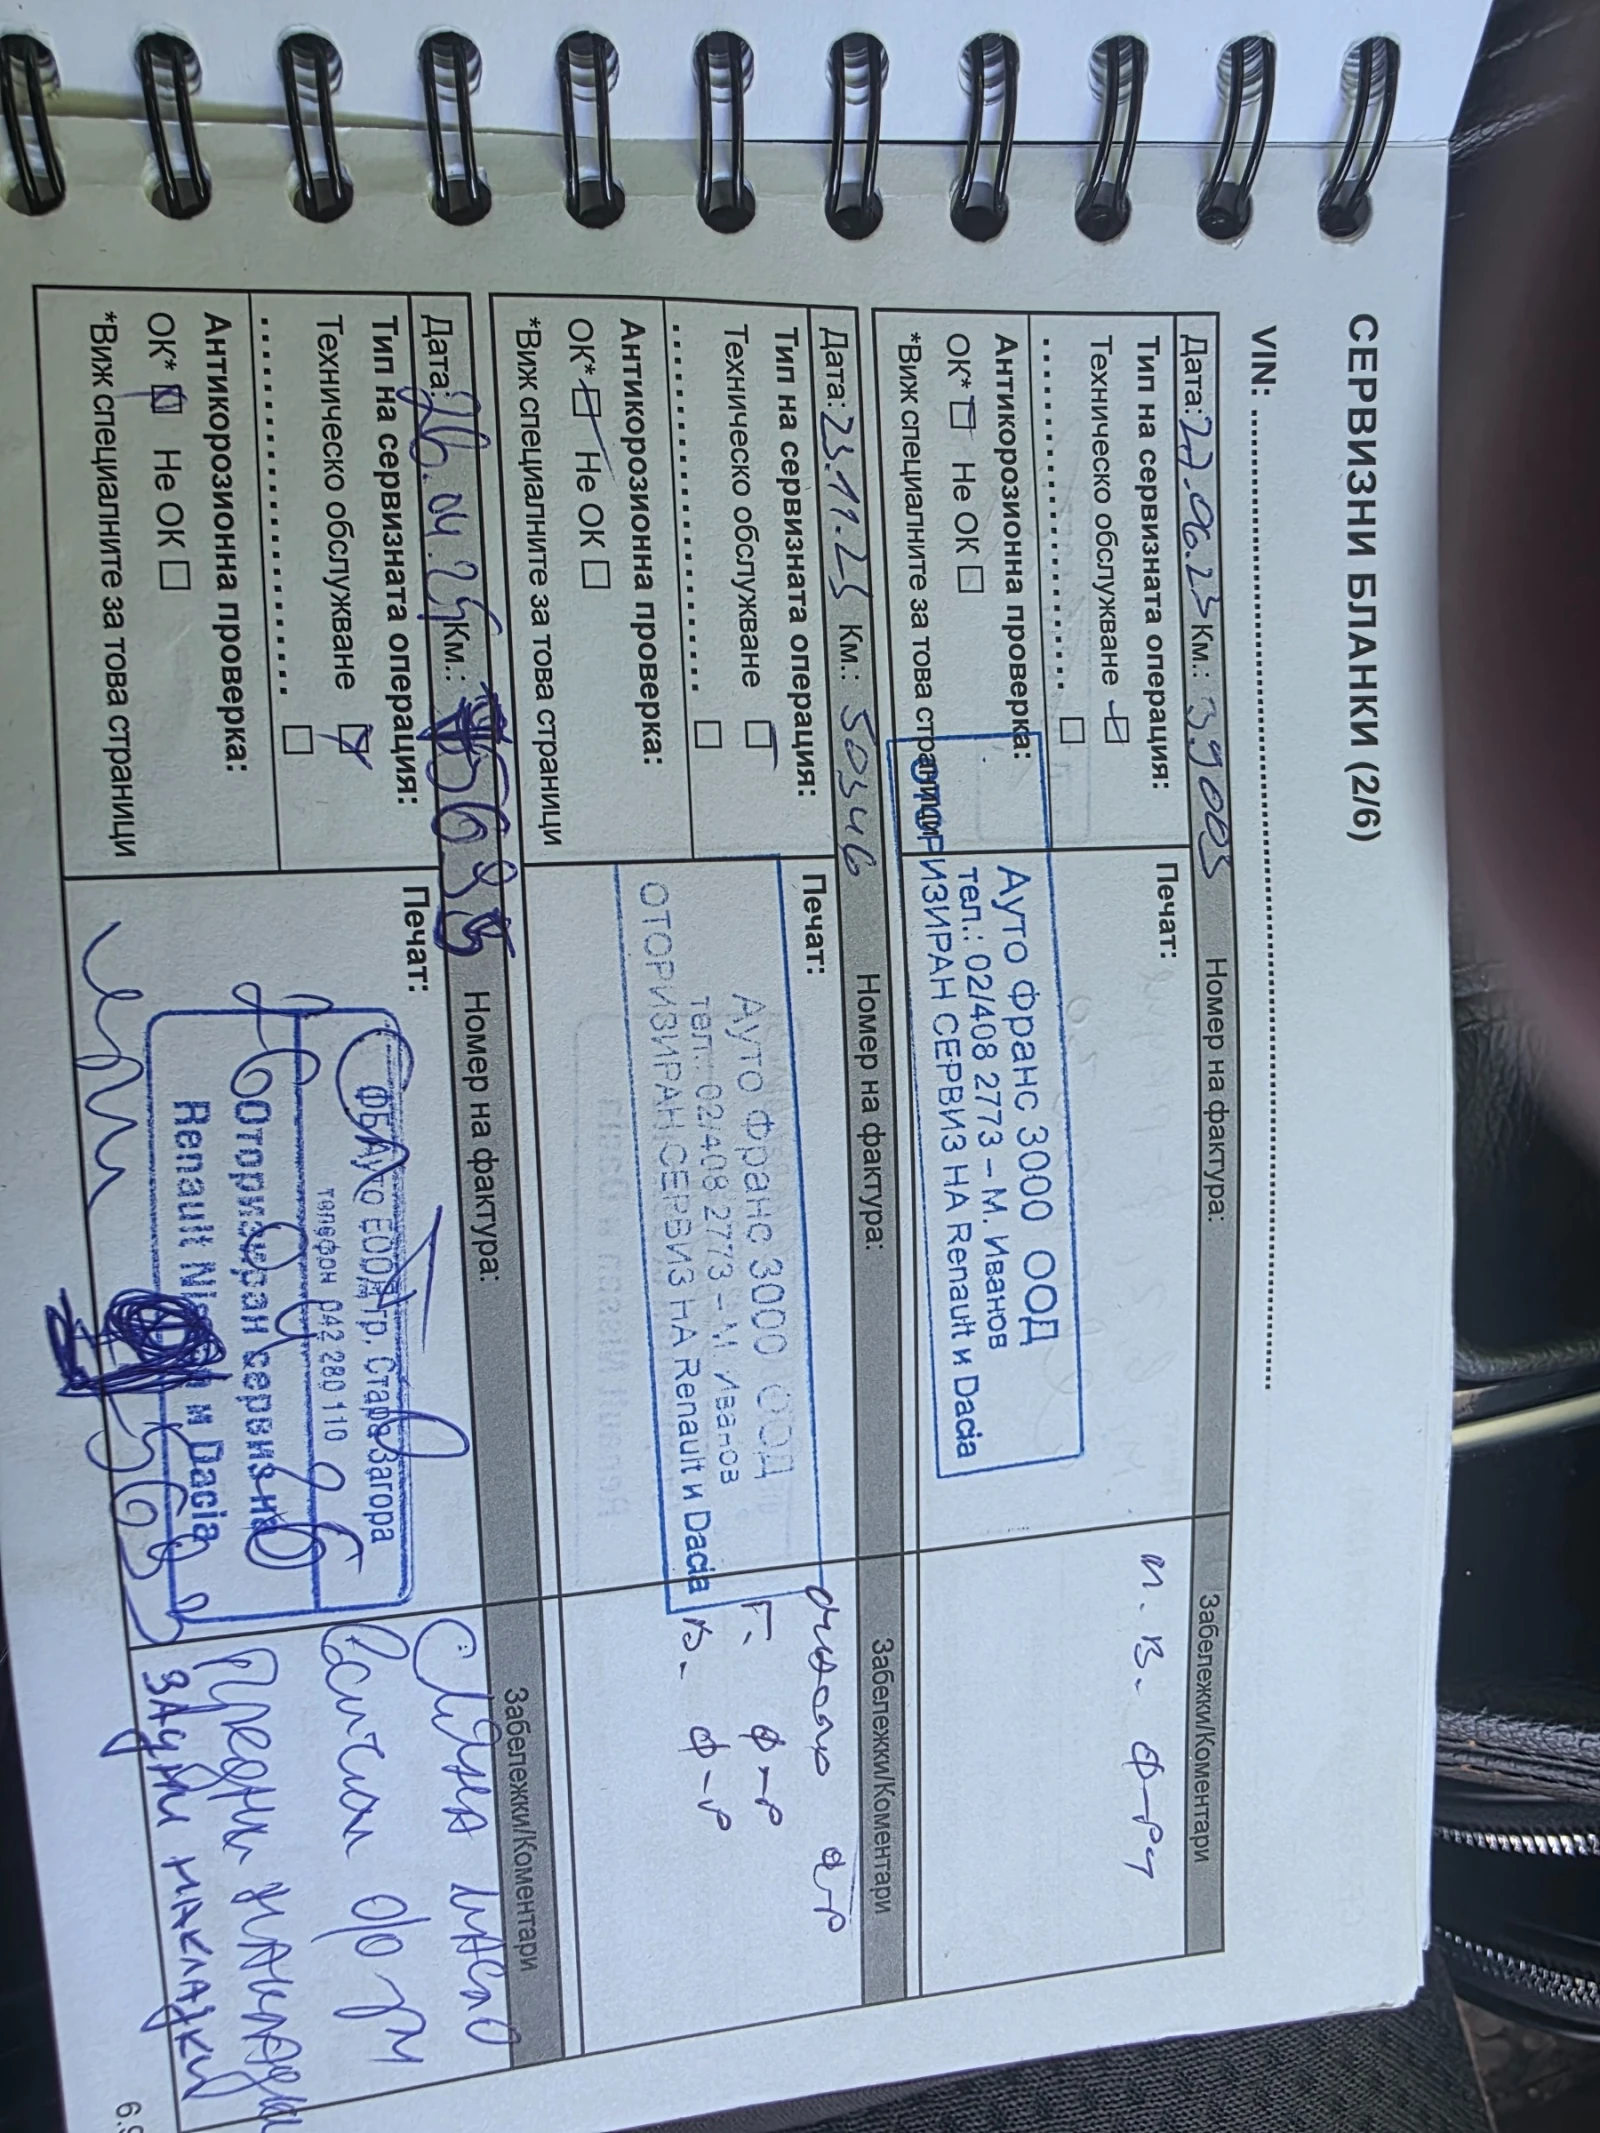 СЕРВИЗНИ БЛАНКИ (2/6)
VIN: ..........
Дата: 27.06.23 Км.: 39005 Номер на фактура: Забележки/Коментари
Тип на сервизната операция:
Техническо обслужване
Антикорозионна проверка:
ОК* Не ОК
*Виж специалните за това страници
Печат:
Ауто Франс 3000 ООД
тел.: 02/408 2773 – М. Иванов
ОТОРИЗИРАН СЕРВИЗ НА Renault и Dacia
м. в. ф-рт
Дата: 23.11.23 Км.: 50346 Номер на фактура: Забележки/Коментари
Тип на сервизната операция:
Техническо обслужване
Антикорозионна проверка:
ОК* Не ОК
*Виж специалните за това страници
Печат:
Ауто Франс 3000 ООД
тел.: 02/408 2773 – М. Иванов
ОТОРИЗИРАН СЕРВИЗ НА Renault и Dacia
ф-р
Г. ф-р
В. ф-р
Дата: 26.04.24 Км.: Номер на фактура: Забележки/Коментари
Тип на сервизната операция:
Техническо обслужване
Антикорозионна проверка:
ОК* Не ОК
*Виж специалните за това страници
Печат:
ФБАуто ЕООД гр. Стара Загора
телефон 042 280 110
Оторизиран сервиз на
Renault и Dacia
Смяна масло
Всички ф-ри
Предни накладки
задни накладки